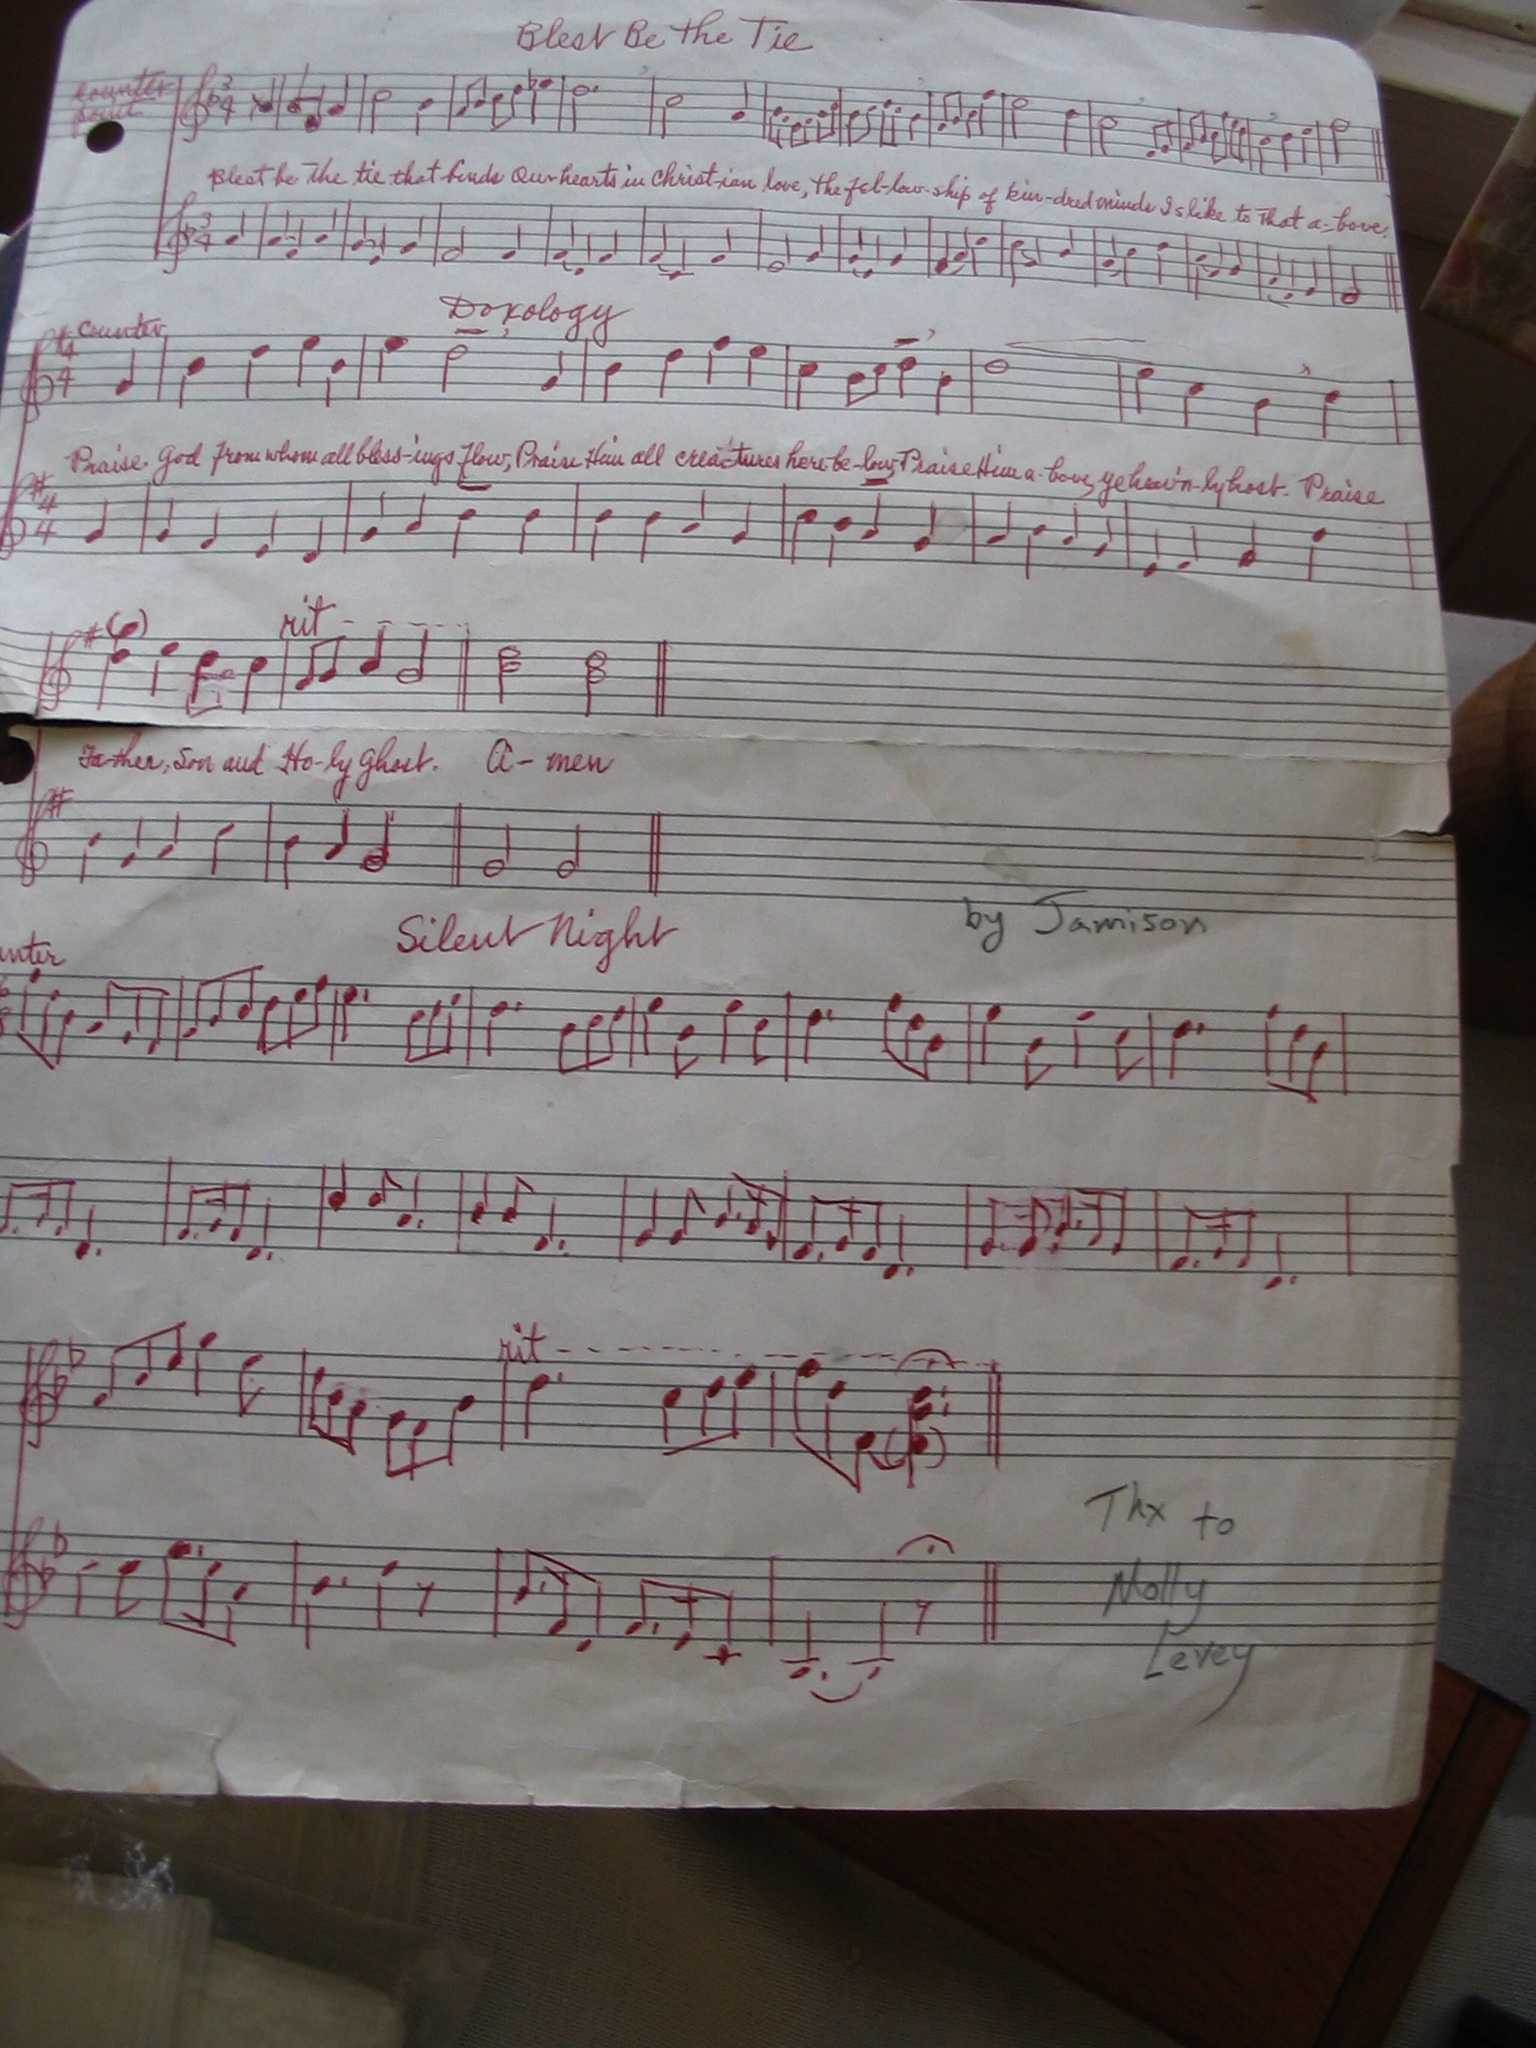 Blest Be the Tie
counter
point
Blest be the tie that binds Our hearts in Christ-ian love, the fel-low-ship of kin-dred minds Is like to that a-bove.
Doxology
Counter
Praise God from whom all bless-ings flow, Praise Him all creatures here be-low, Praise Him a-bove, ye heav'n-ly host. Praise
rit
Fa-ther, Son and Ho-ly Ghost. A-men
by Jamison
Silent Night
unter
rit
Thx to
Molly
Levey